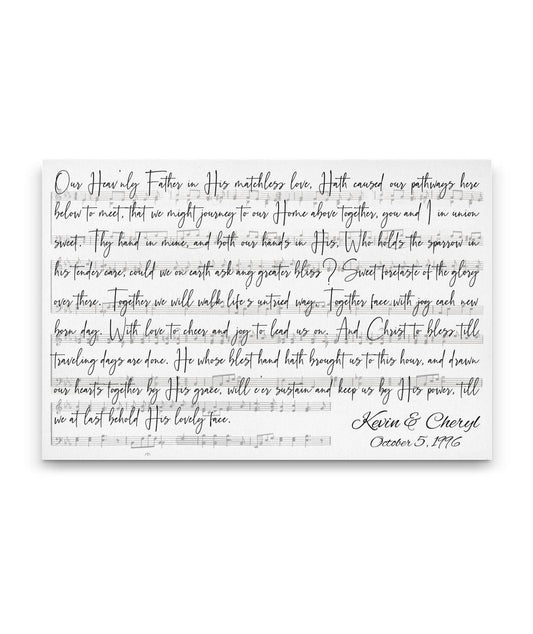 Our Heav'nly Father in His matchless love, Hath caused our pathways here
below to meet, that we might journey to our Home above together, you and I in union
sweet. Thy hand in mine, and both our hands in His, Who holds the sparrow in
his tender care, could we on earth ask any greater bliss? Sweet foretaste of the glory
over there. Together we will walk life's untried way, Together face with joy each new
born day. With love to cheer and joy to lead us on. And Christ to bless, till
traveling days are done. He whose blest hand hath brought us to this hour, and drawn
our hearts together by His grace, will e'er sustain and keep us by His power, till
we at last behold His lovely face.
Kevin & Cheryl
October 5, 1996